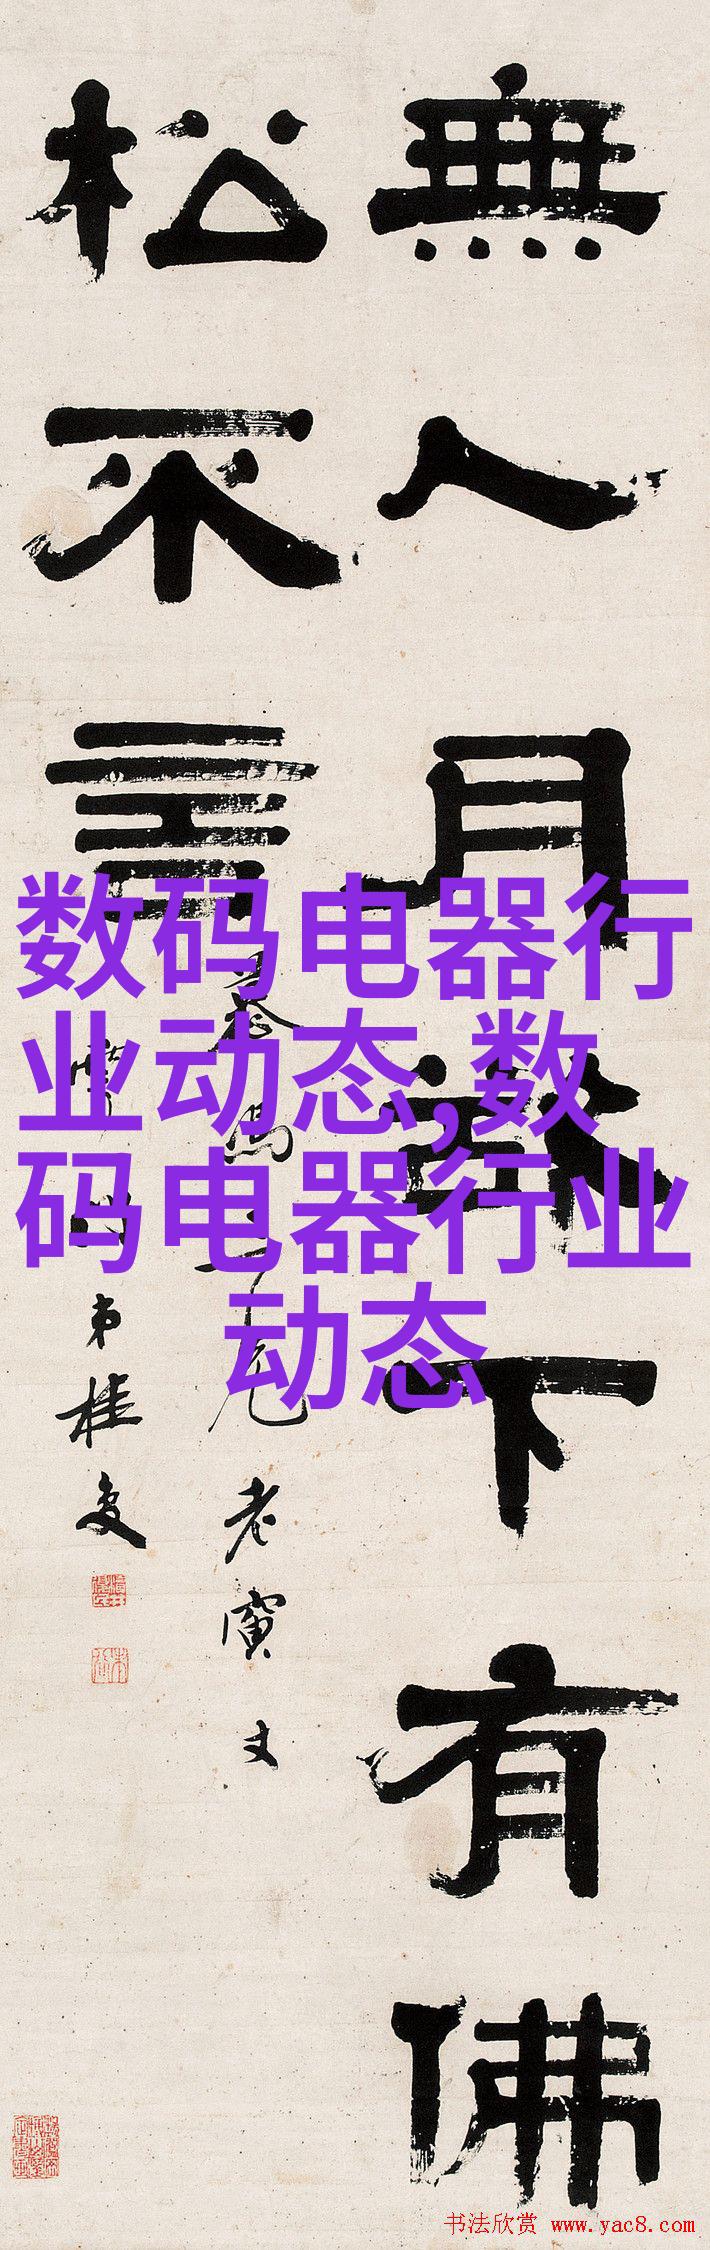 無人月下有佛
松不言
老寅丈
弟桂
数码电器行
业动态,数
码电器行业
动态
书法欣赏 www.yac8.com